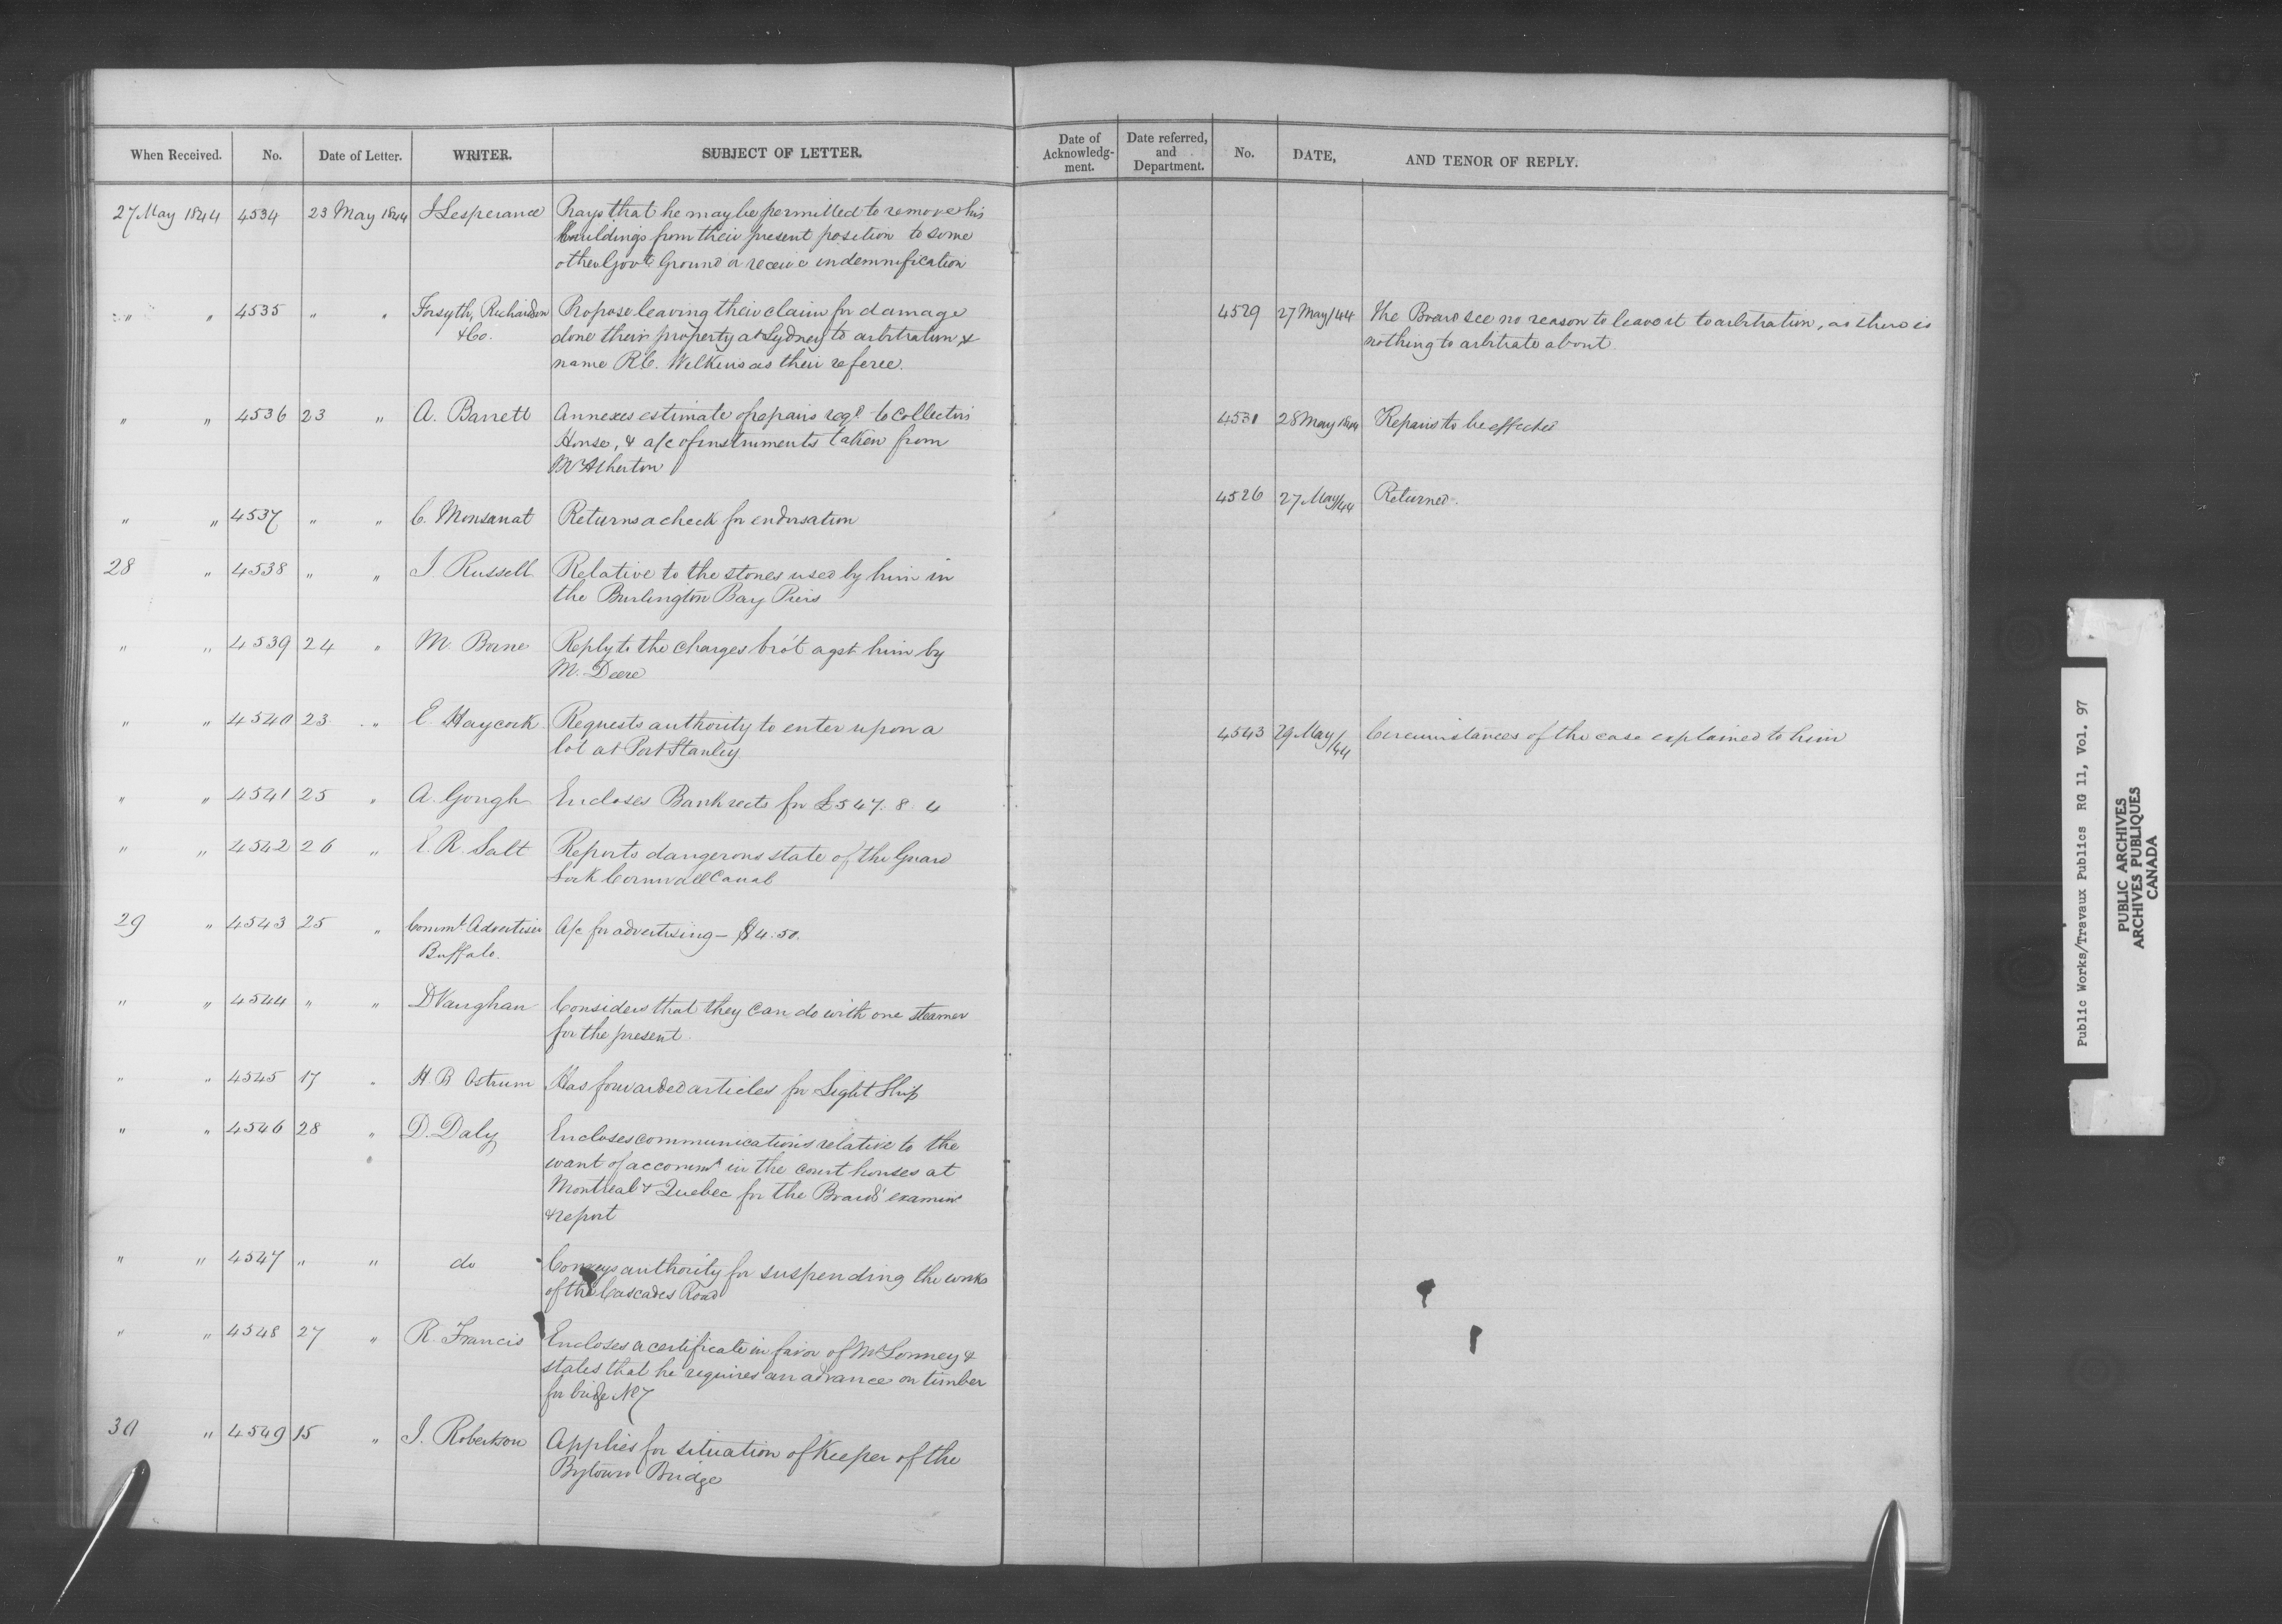 When Received. No. Date of Letter. WRITER. SUBJECT OF LETTER. Date of Acknowledg-ment. Date referred, and Department. No. DATE, AND TENOR OF REPLY.
27 May 1844 4534 23 May 1844 J Lesperance Prays that he may be permitted to remove his
buildings from their present position to some
other Govt Ground or receive indemnification
" " 4535 " " Forsyth, Richardson Propose leaving their claim for damage 4529 27 May/44 The Board see no reason to leave it to arbitration, as there is
&Co. done their property at Sydney to arbitration & nothing to arbitrate about.
name R.C. Wilkins as their referee.
" " 4536 23 " A. Barrett Annexes estimate of repairs reqd to Collectors 4531 28 May 1844 Repairs to be effected
House, & a/c of instruments taken from
Mr Atherton
4526 27 May/44 Returned.
" " 4537 " " C. Monsanat Returns a check for endorsation
28 " 4538 " " J. Russell Relative to the stones used by him in
the Burlington Bay Piers
" " 4539 24 " M. Borne Reply to the charges bro't agst him by
M. Deere
" " 4540 23 " E. Haycock Requests authority to enter upon a 4543 29 May/44 Circumstances of the case explained to him
lot at Port Stanley
" " 4541 25 " A. Gough Encloses Bank rects for £547. 8 4
" " 4542 26 " E. R. Salt Reports dangerous state of the Guard
Lock Cornwall Canal
29 " 4543 25 " Comml Advertiser A/c for advertising – $4.50.
Buffalo.
" " 4544 " " D Vaughan Considers that they can do with one steamer
for the present
" " 4545 17 " H. B Ostrum Has forwarded articles for Light Ship
" " 4546 28 " D. Daly Encloses communications relative to the
want of accommn in the court houses at
Montreal & Quebec for the Board's examinn
& report
" " 4547 " " do Conveys authority for suspending the works
of the Cascades Road
" " 4548 27 " R. Francis Encloses a certificate in favor of Mr Lonney &
states that he requires an advance on timber
for bridge No 7
30 " 4549 15 " J. Robertson Applies for situation of Keeper of the
Bytown Bridge
Public Works/Travaux Publics RG 11, Vol. 97
PUBLIC ARCHIVES
ARCHIVES PUBLIQUES
CANADA